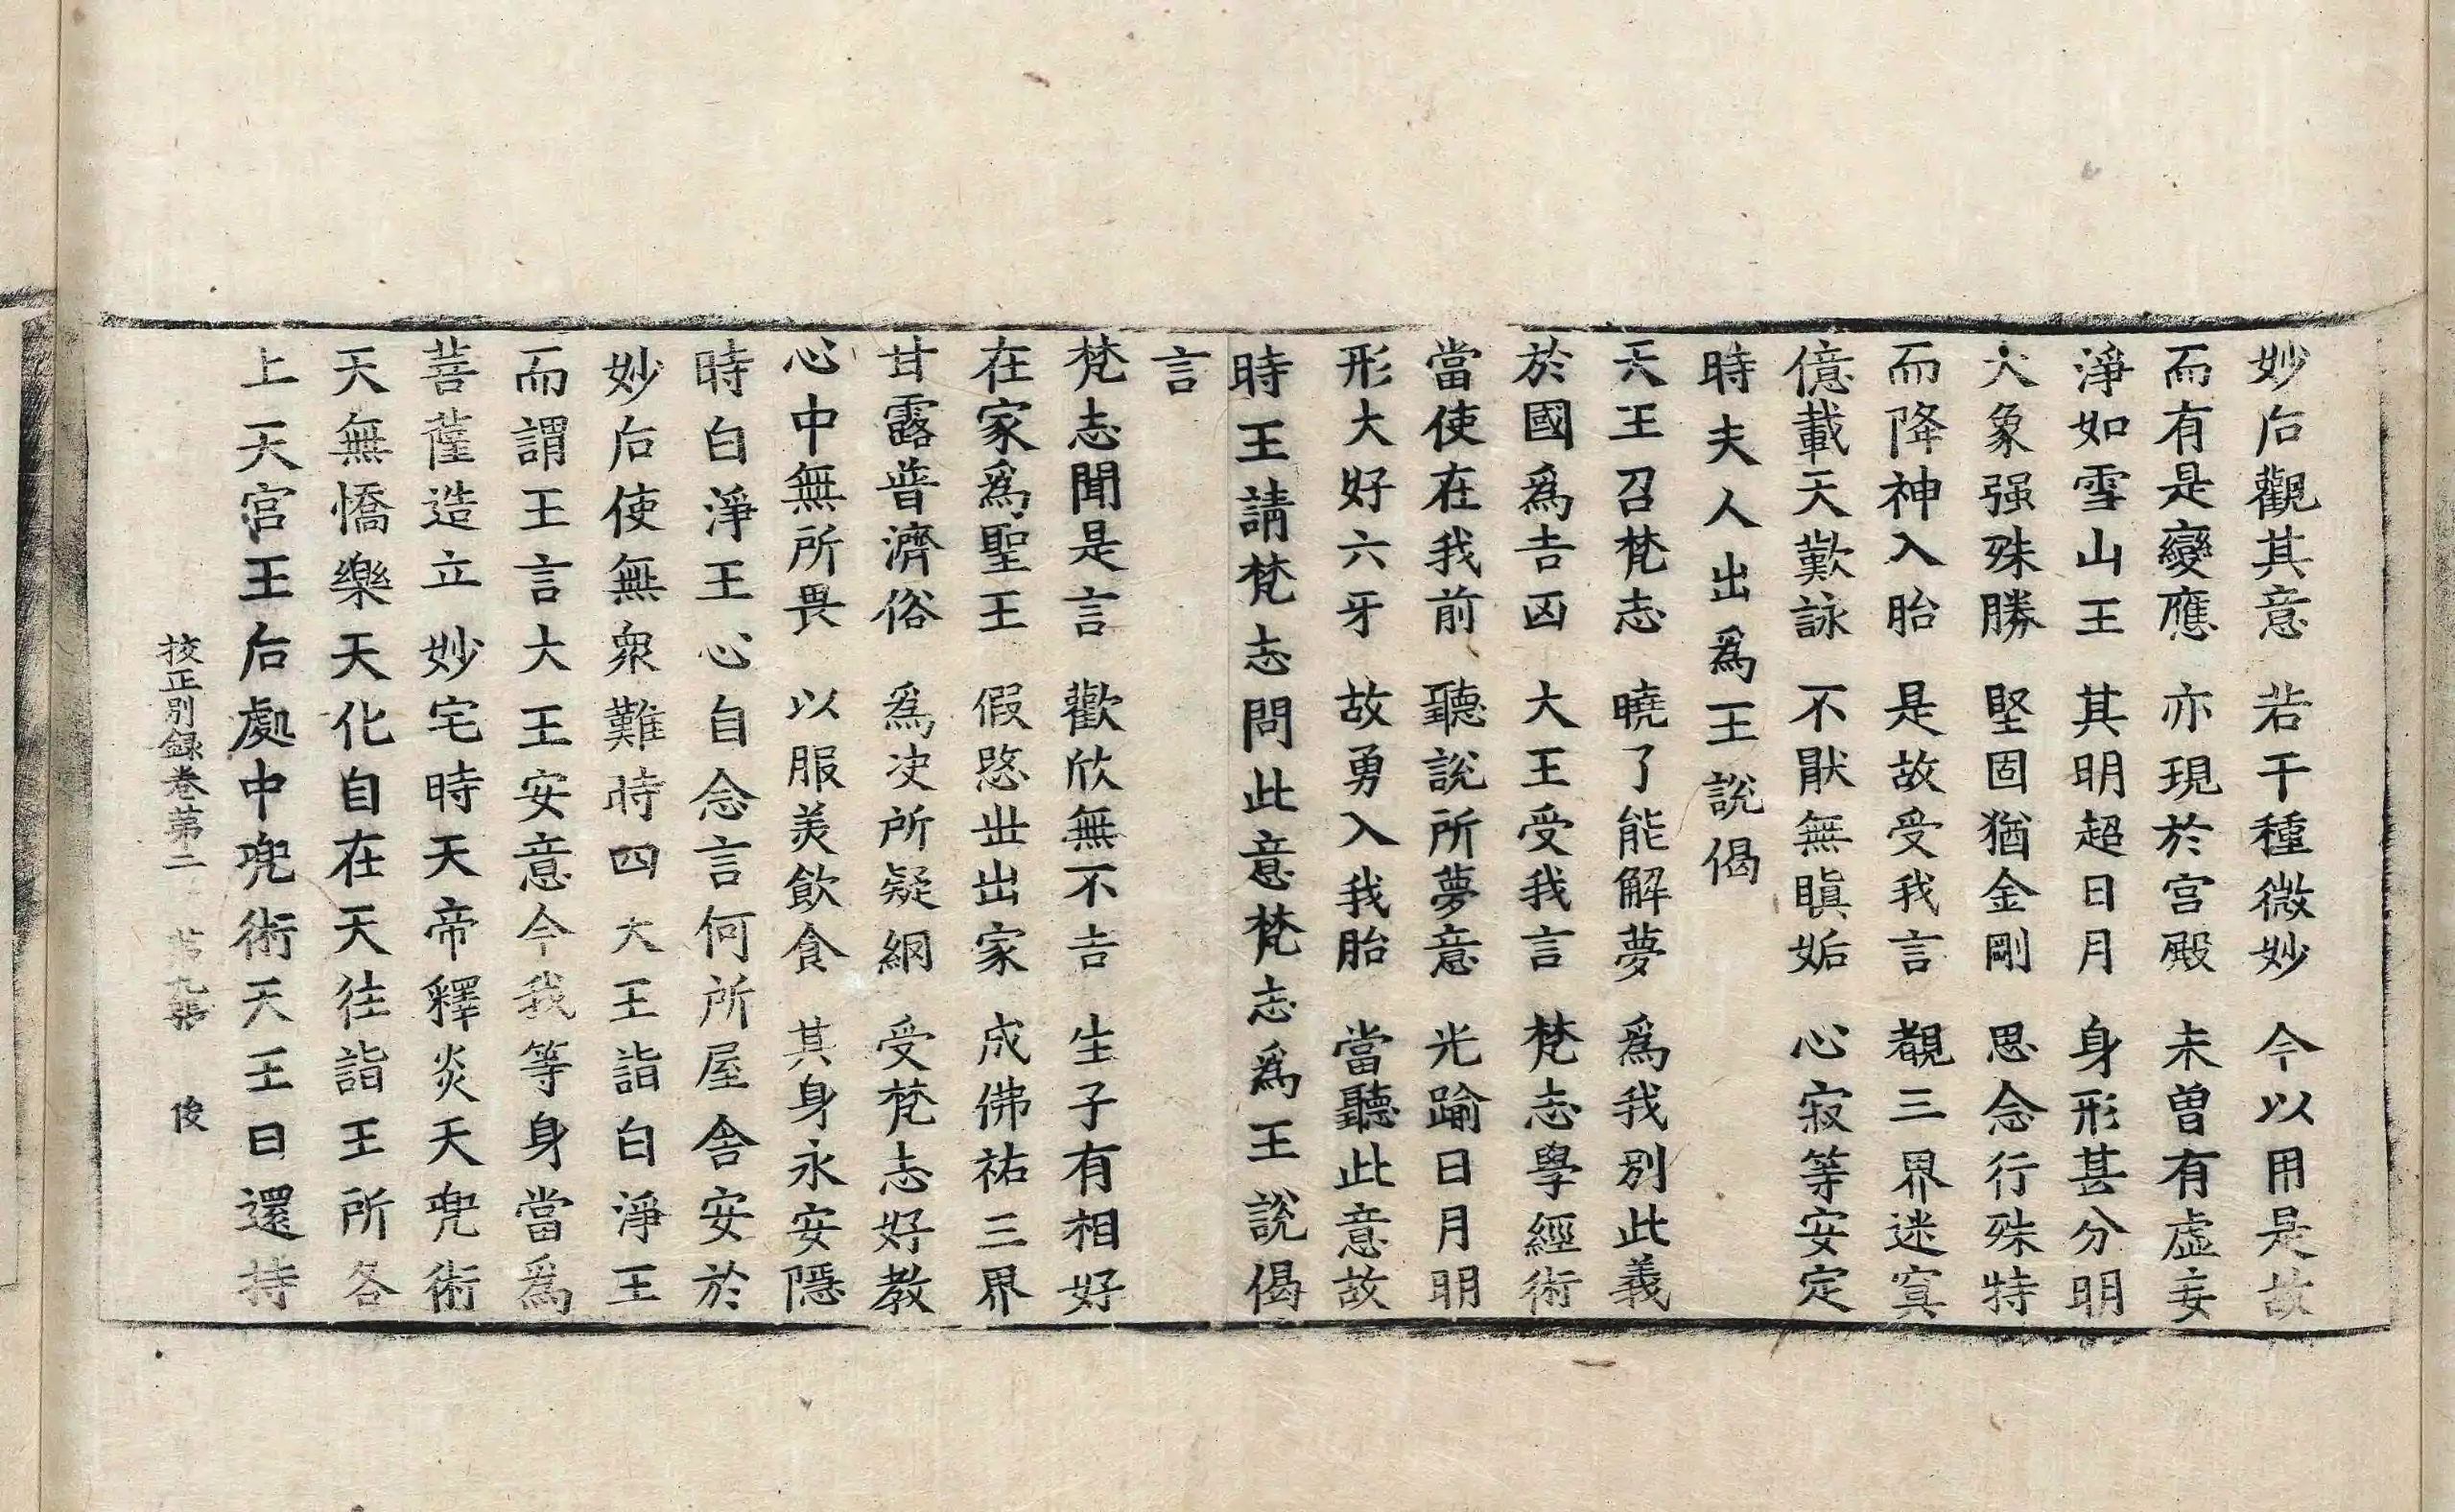 妙后觀其意　若干種微妙　今以用是故
而有是變應　亦現於宮殿　未曾有虛妄
淨如雪山王　其明超日月　身形甚分明
大象强殊勝　堅固猶金剛　思念行殊特
而降神入胎　是故受我言　覩三界迷冥
億載天歎詠　不猒無瞋妬　心寂等安定
時夫人出爲王說偈
天王召梵志　曉了能解夢　爲我別此義
於國爲吉凶　大王受我言　梵志學經術
當使在我前　聽說所夢意　光踰日月明
形大好六牙　故勇入我胎　當聽此意故
時王請梵志問此意梵志爲王說偈
言
梵志聞是言　歡欣無不吉　生子有相好
在家爲聖王　假愍世出家　成佛祐三界
甘露普濟俗　爲决所疑網　受梵志好教
心中無所畏　以服美飲食　其身永安隱
時白淨王心自念言何所屋舍安於
妙后使無衆難時四大王詣白淨王
而謂王言大王安意今我等身當爲
菩薩造立妙宅時天帝釋炎天兜術
天無憍樂天化自在天徃詣王所各
上天宮王后處中兜術天王曰還持
挍正別録卷第二　第九張　俊